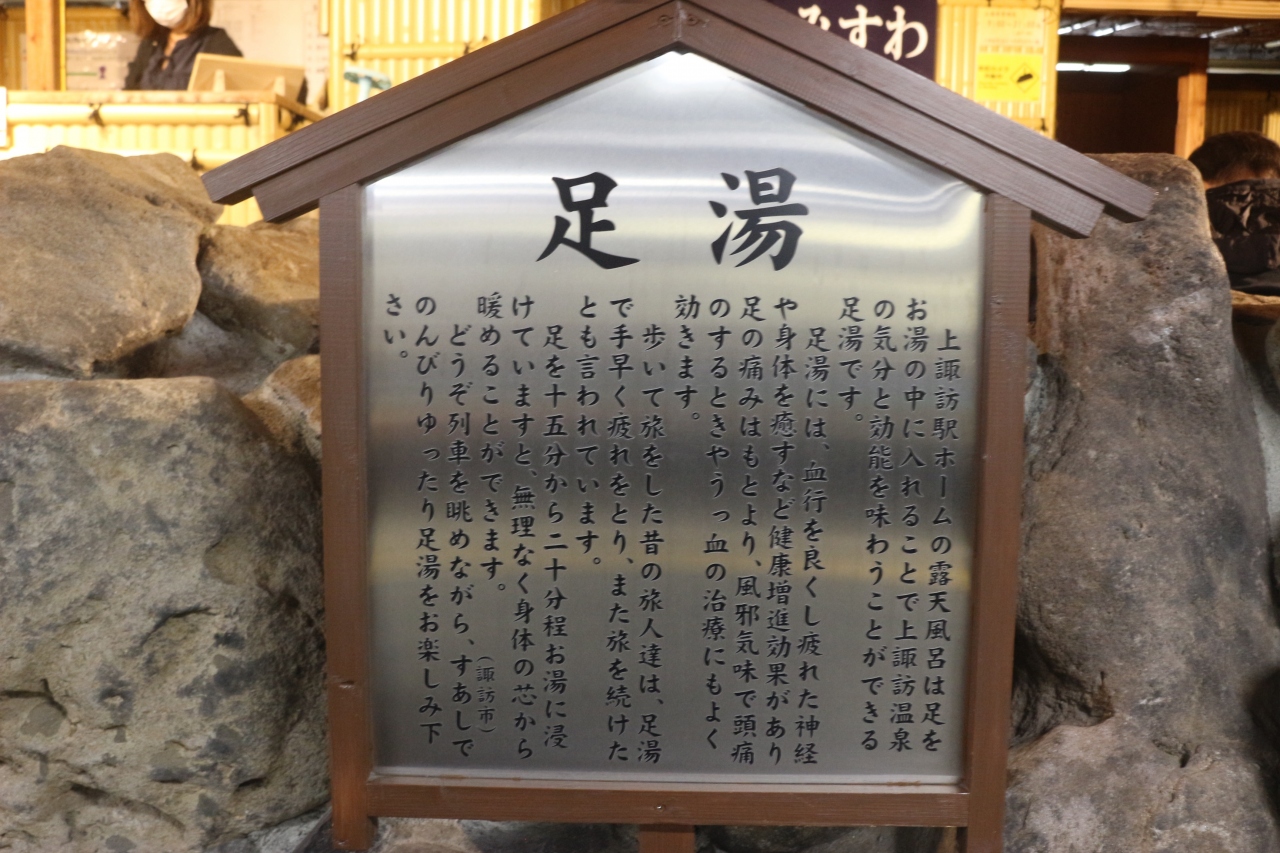 みすわ
足湯
上諏訪駅ホームの露天風呂は足を
お湯の中に入れることで上諏訪温泉
の気分と効能を味わうことができる
足湯です。
足湯には、血行を良くし疲れた神経
や身体を癒すなど健康増進効果があり
足の痛みはもとより、風邪気味で頭痛
のするときやうっ血の治療にもよく
効きます。
歩いて旅をした昔の旅人達は、足湯
で手早く疲れをとり、また旅を続けた
とも言われています。
足を十五分から二十分程お湯に浸
けていますと、無理なく身体の芯から
暖めることができます。
(諏訪市)
どうぞ列車を眺めながら、すあしで
のんびりゆったり足湯をお楽しみ下
さい。